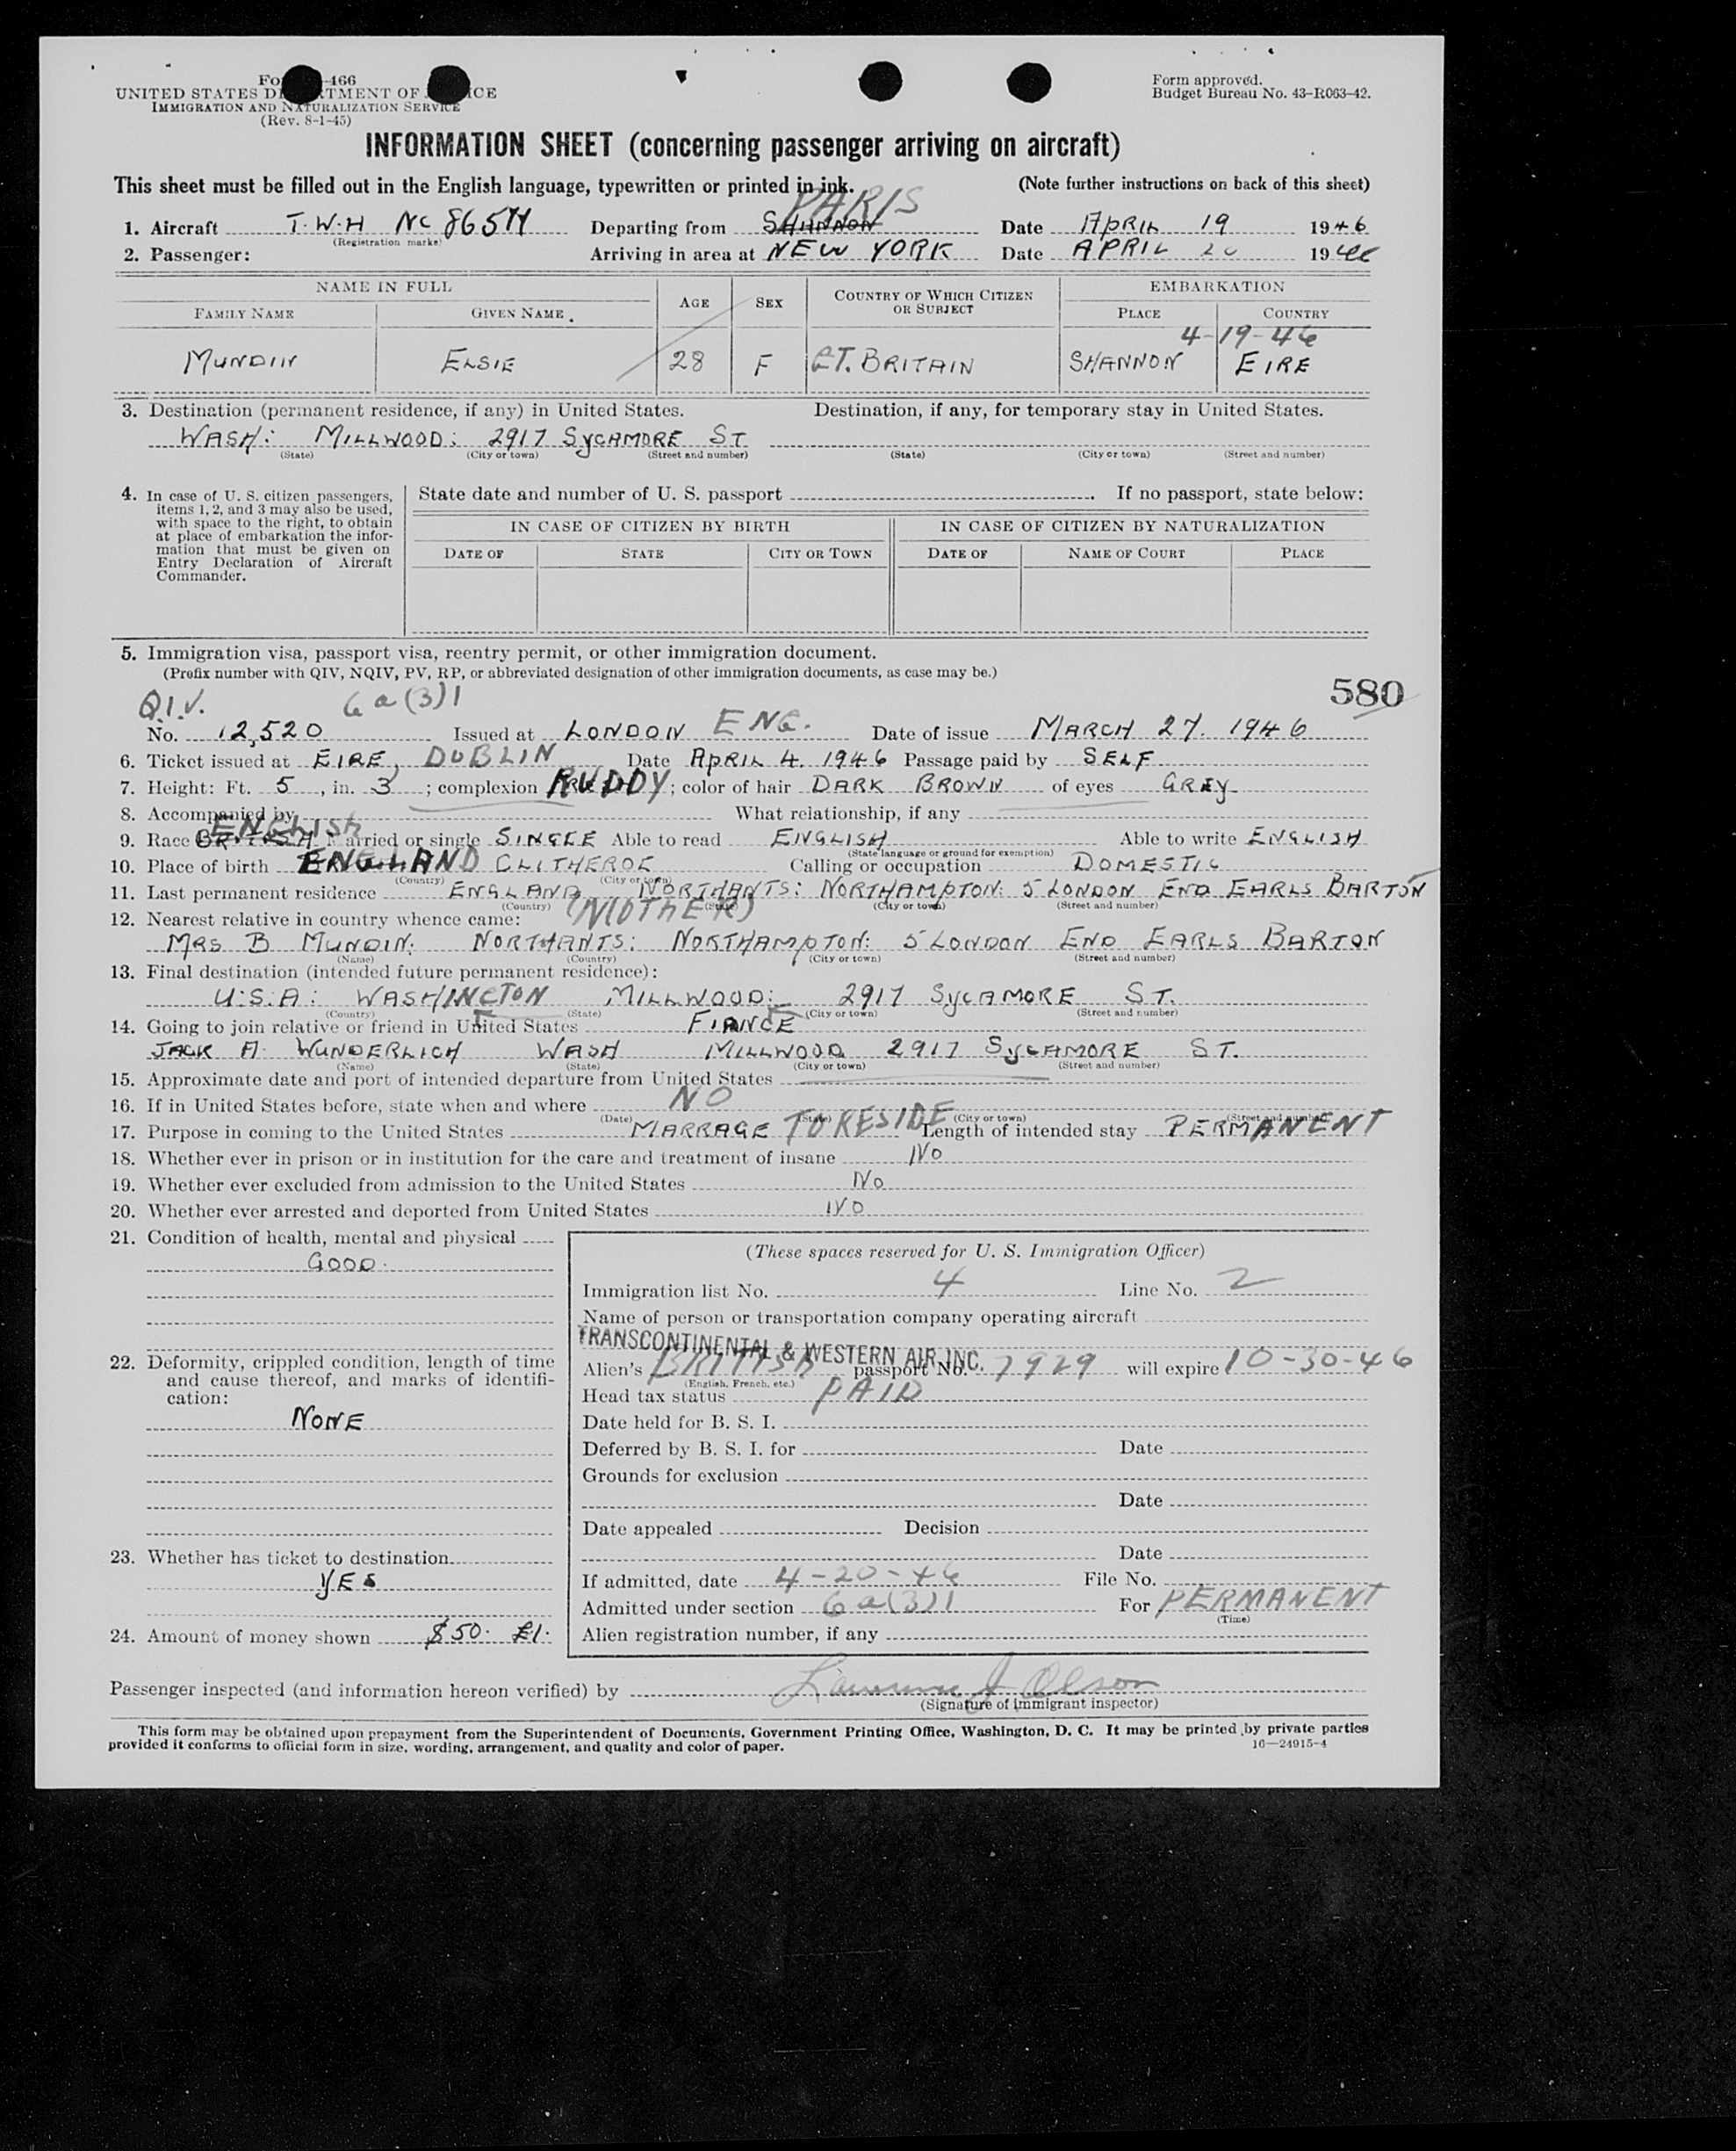 Fo -466
UNITED STATES D TMENT OF ICE
IMMIGRATION AND NATURALIZATION SERVICE
(Rev. 8-1-45)
Form approved.
Budget Bureau No. 43-R063-42.
INFORMATION SHEET (concerning passenger arriving on aircraft)
This sheet must be filled out in the English language, typewritten or printed in ink. (Note further instructions on back of this sheet)
PARIS
1. Aircraft T.W.A NC 86511 Departing from SHANNON Date APRIL 19 1946
(Registration marks)
2. Passenger: Arriving in area at NEW YORK Date APRIL 20 1946
NAME IN FULL AGE SEX COUNTRY OF WHICH CITIZEN OR SUBJECT EMBARKATION
FAMILY NAME GIVEN NAME PLACE COUNTRY
4-19-46
MUNDIN ELSIE 28 F GT. BRITAIN SHANNON EIRE
3. Destination (permanent residence, if any) in United States. Destination, if any, for temporary stay in United States.
WASH: MILLWOOD: 2917 SYCAMORE ST
(State) (City or town) (Street and number) (State) (City or town) (Street and number)
4. In case of U. S. citizen passengers, items 1, 2, and 3 may also be used, with space to the right, to obtain at place of embarkation the information that must be given on Entry Declaration of Aircraft Commander.
State date and number of U. S. passport . If no passport, state below:
IN CASE OF CITIZEN BY BIRTH IN CASE OF CITIZEN BY NATURALIZATION
DATE OF STATE CITY OR TOWN DATE OF NAME OF COURT PLACE
5. Immigration visa, passport visa, reentry permit, or other immigration document.
(Prefix number with QIV, NQIV, PV, RP, or abbreviated designation of other immigration documents, as case may be.)
580
Q.I.V. 6a(3)1
No. 12,520 Issued at LONDON ENG. Date of issue MARCH 27. 1946
6. Ticket issued at EIRE, DUBLIN Date APRIL 4. 1946 Passage paid by SELF
7. Height: Ft. 5, in. 3; complexion RUDDY; color of hair DARK BROWN of eyes GREY
8. Accompanied by What relationship, if any
ENGLISH
9. Race BRITISH Married or single SINGLE Able to read ENGLISH Able to write ENGLISH
(State language or ground for exemption)
10. Place of birth ENGLAND CLITHEROE Calling or occupation DOMESTIC
(Country) (City or town)
11. Last permanent residence ENGLAND NORTHANTS: NORTHAMPTON: 5 LONDON END EARLS BARTON
(Country) (State) (City or town) (Street and number)
12. Nearest relative in country whence came: (MOTHER)
MRS B MUNDIN: NORTHANTS: NORTHAMPTON: 5 LONDON END EARLS BARTON
(Name) (Country) (City or town) (Street and number)
13. Final destination (intended future permanent residence):
U.S.A: WASHINGTON MILLWOOD: 2917 SYCAMORE ST.
(Country) (State) (City or town) (Street and number)
14. Going to join relative or friend in United States FIANCE
JACK A WUNDERLICH WASH MILLWOOD 2917 SYCAMORE ST.
(Name) (State) (City or town) (Street and number)
15. Approximate date and port of intended departure from United States
16. If in United States before, state when and where NO
(Date) (State) (City or town) (Street and number)
17. Purpose in coming to the United States MARRAGE TO RESIDE Length of intended stay PERMANENT
18. Whether ever in prison or in institution for the care and treatment of insane NO
19. Whether ever excluded from admission to the United States NO
20. Whether ever arrested and deported from United States NO
21. Condition of health, mental and physical
GOOD.
22. Deformity, crippled condition, length of time and cause thereof, and marks of identification:
NONE
23. Whether has ticket to destination
YES
24. Amount of money shown $50. £1.
(These spaces reserved for U. S. Immigration Officer)
Immigration list No. 4 Line No. 2
Name of person or transportation company operating aircraft
TRANSCONTINENTAL & WESTERN AIR, INC.
Alien's BRITISH passport No. 7929 will expire 10-30-46
(English, French, etc.)
Head tax status PAID
Date held for B. S. I.
Deferred by B. S. I. for Date
Grounds for exclusion
Date
Date appealed Decision
Date
If admitted, date 4-20-46 File No.
Admitted under section 6a(3)1 For PERMANENT
(Time)
Alien registration number, if any
Passenger inspected (and information hereon verified) by Lawrence J Olson
(Signature of immigrant inspector)
This form may be obtained upon prepayment from the Superintendent of Documents, Government Printing Office, Washington, D. C. It may be printed by private parties
provided it conforms to official form in size, wording, arrangement, and quality and color of paper. 16—24915-4